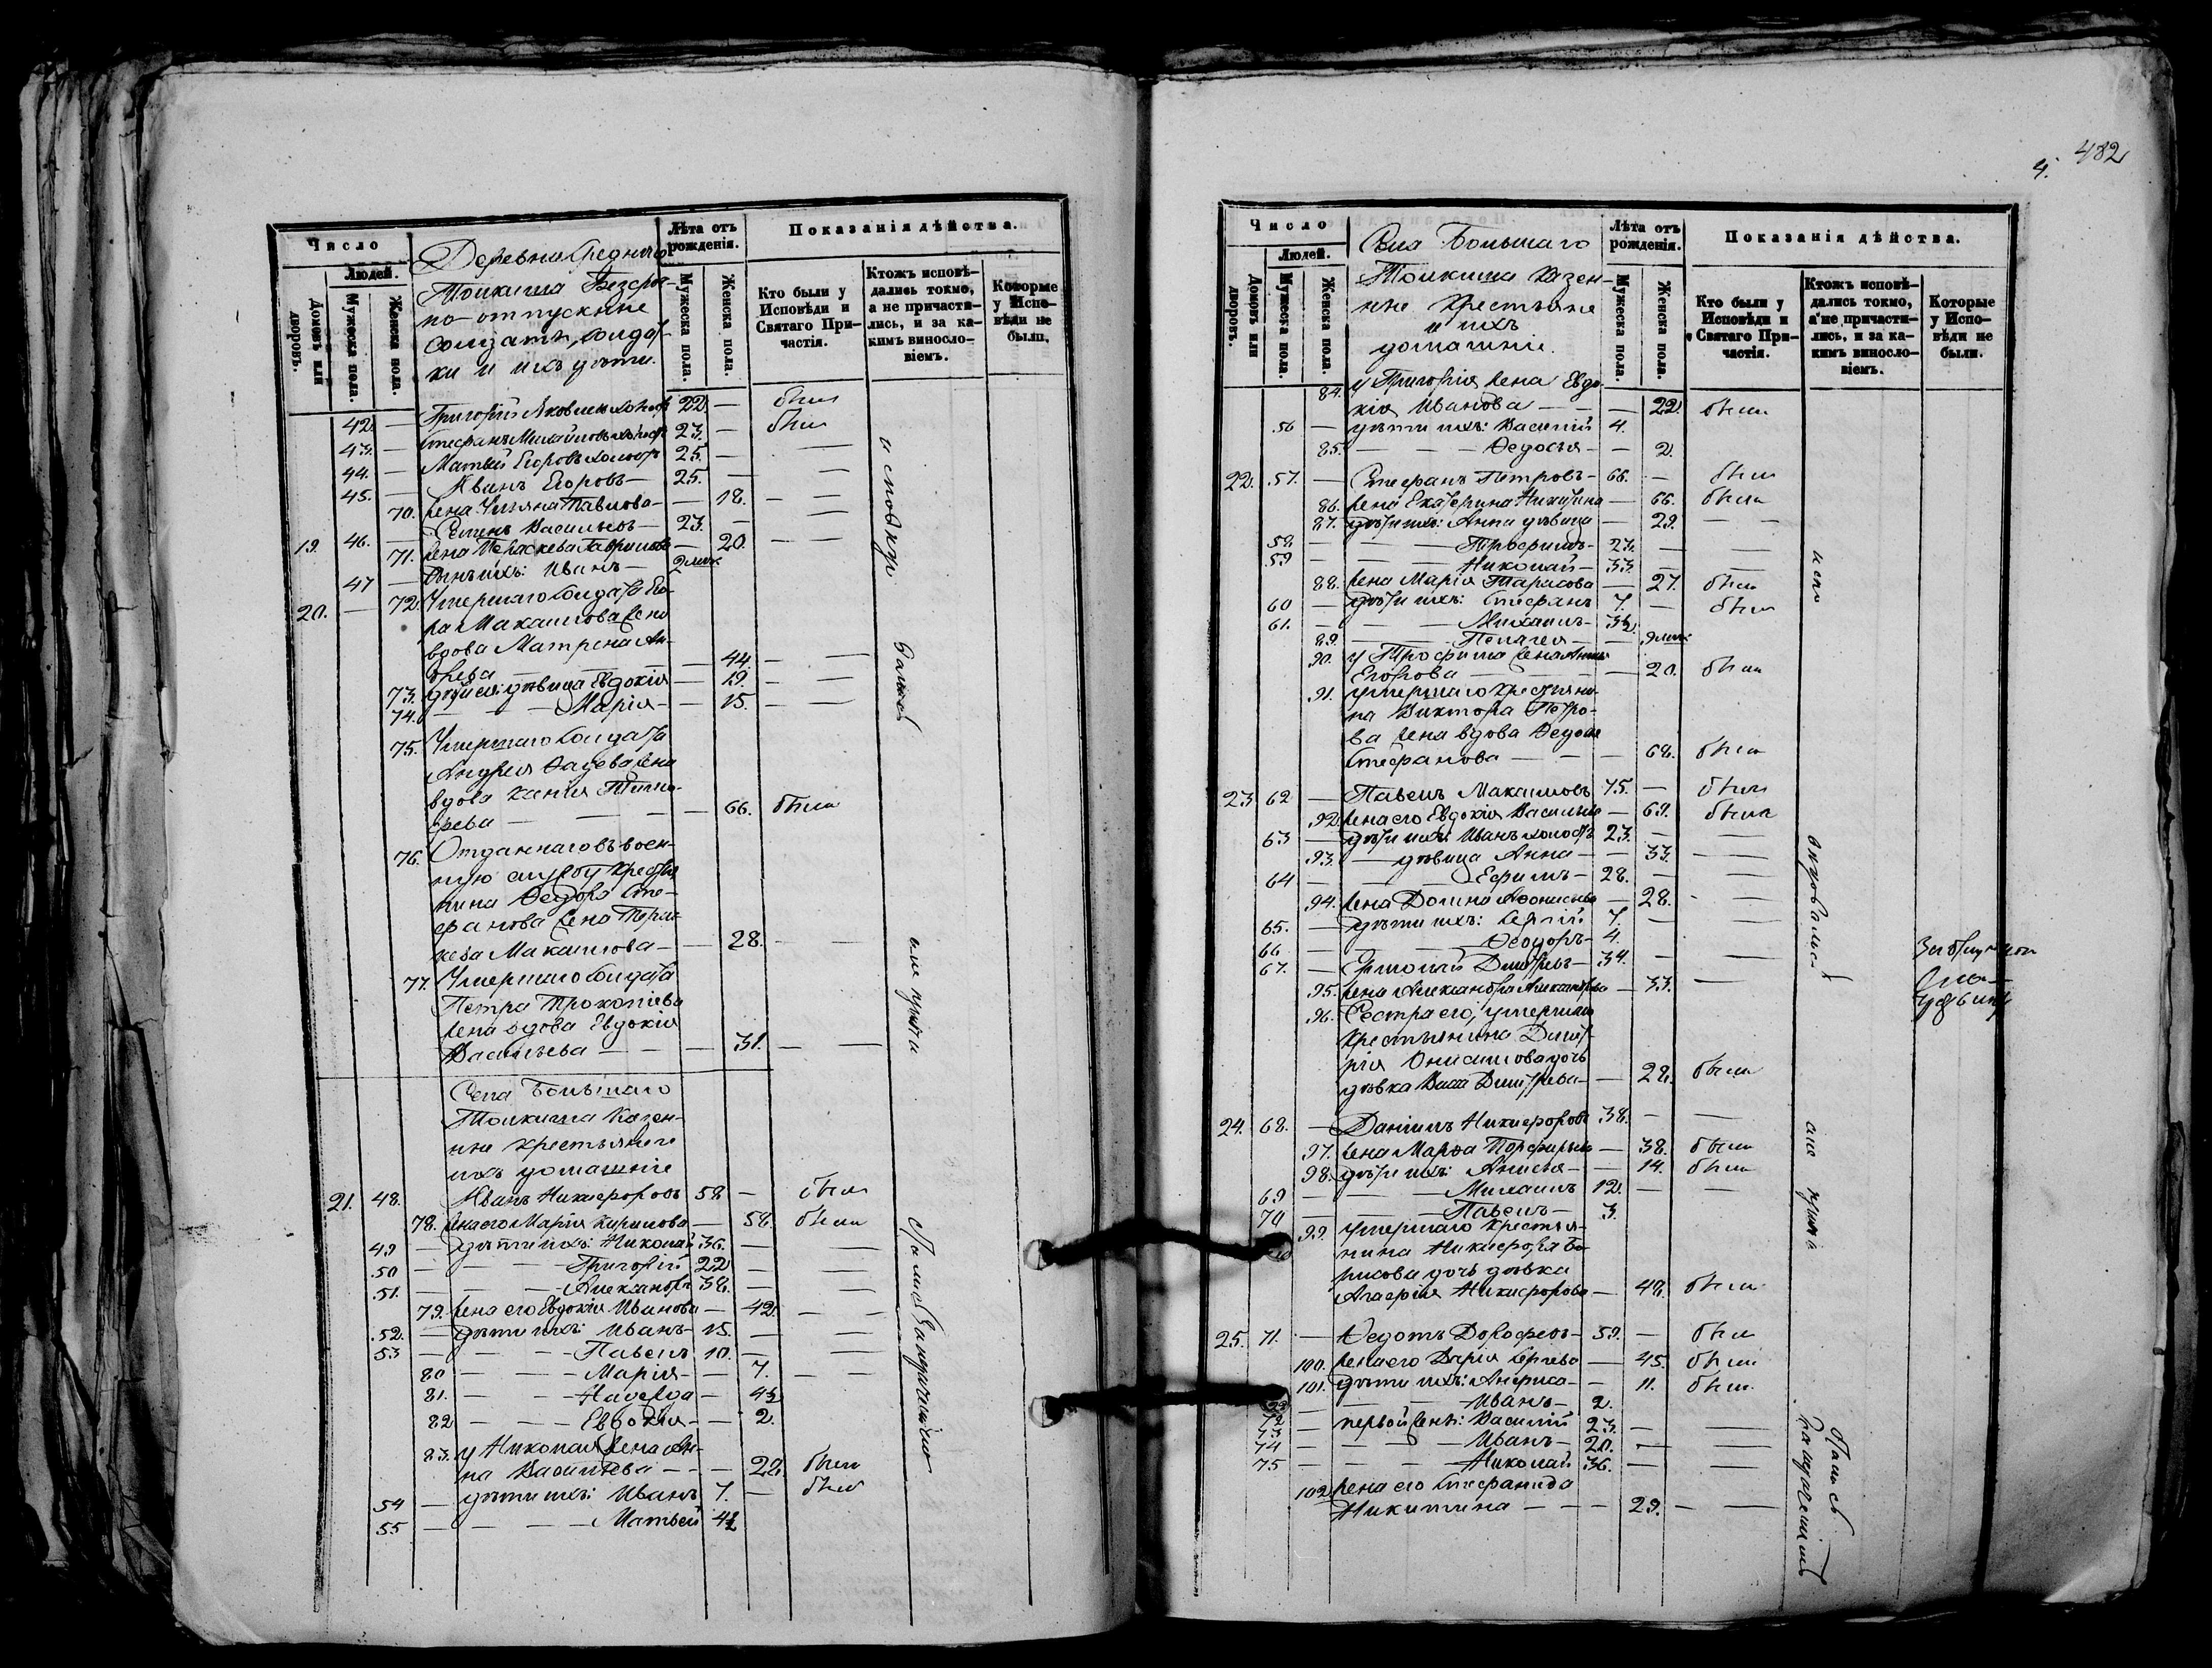 Число
Людей.
Домовъ или дворовъ.
Мужеска пола.
Женска пола.
Деревни Средняго
Толкиша Безсроч-
но-отпускные
Солдаты, Солдат-
ки и ихъ дѣти.
Лѣта отъ рожденія.
Мужеска пола.
Женска пола.
Показанія дѣйства.
Кто были у Исповѣди и Святаго Причастія.
Ктожъ исповѣдались токмо, а не причастились, и за какимъ винословіемъ.
Которые у Исповѣди не были.
42 — Григорій Яковлевъ холост 22 — былъ
43 — Стефанъ Михайловъ холост 23. — былъ
44. — Матвѣй Егоровъ холостъ 25. — —
45. — Иванъ Егоровъ — 25. — —
70. жена Ульяна Павлова — — 18. — —
19. 46. — Семенъ Васильевъ — 23. — —
71. жена Параскева Гаврилова — 20. — —
47 — сынъ ихъ: Иванъ — 9 мѣс
20. — 72. Умершаго Солдата Его-
ра Макаимова жена
вдова Матрена Ан-
дреева — — 44. — —
73. дѣти ея: дѣвица Евдокія — 19. — —
74. — — — Марія — — 15. — —
75. Умершаго Солдата
Андрея Фадѣева жена
вдова Ксенія Тимо-
феева — — — 66. были
76. Отданнаго въ воен-
ную службу крестья
нина Федора Сте-
фанова жена Парас
кева Макаимова — — 28. — —
77. Умершаго Солдата
Петра Прокопіева
жена вдова Евдокія
Васильева — — — 31. — —
Села Большаго
Толкиша Казен-
ные крестьяне и
ихъ домашніе
21. 48. Иванъ Никифоровъ 58 — былъ
78. жена его Марія Кирилова — 58. была
49 — дѣти ихъ: Николай 36. — —
50 — — — Григорій 22 — —
51. — — — Александръ 38. — —
79. жена его Евдокія Иванова — 42. — —
52. — дѣти ихъ: Иванъ — 15. — —
53 — — — Павелъ 10. — —
80 — — — Марія — — 7. — —
81. — — — Надежда — 4½
82 — — — Евдокія — — 2.
83. у Николая жена Ан-
на Васильева — — — 22. была
54 — дѣти ихъ: Иванъ 7. — былъ
55 — — — Матвѣй 4½
исповѣдыва
вались
а не прича
стились
482
4.
Число
Людей.
Домовъ или дворовъ.
Мужеска пола.
Женска пола.
Села Большаго
Толкиша Казен-
ные крестьяне
и ихъ
домашніе.
Лѣта отъ рожденія.
Мужеска пола.
Женска пола.
Показанія дѣйства.
Кто были у Исповѣди и Святаго Причастія.
Ктожъ исповѣдались токмо, а не причастились, и за какимъ винословіемъ.
Которые у Исповѣди не были.
84. у Григорія жена Евдо
кія Иванова — — — 22. была
56 — дѣти ихъ: Василій 4.
85. — — — Федосья — — 2.
22. 57. — Стефанъ Петровъ — 66. — былъ
86. жена Екатерина Никитина — 66. была
87. дѣти ихъ: Анна дѣвица — 29. — —
58 — — — Трофимъ — 23. — —
59 — — — Николай — 33. — —
88. жена Марія Тарасова — 27. была
60 — дѣти ихъ: Стефанъ 7. — былъ
61. — — — Михаилъ — 3½
89. — — — Пелагея — — 9 мѣс
90. у Трофима жена Анна
Егорова — — — 20. была
91. умершаго крестьяни-
на Виктора Петро-
ва жена вдова Федосья
Стефанова — — — 68. была
23 62 — Павелъ Макаимовъ 75. — былъ
92. жена его Евдокія Васильева — 69. была
63 — дѣти ихъ: Иванъ холостъ 23. — —
93. — дѣвица Анна — — 33. —
64 — — — Ефимъ — 28. — —
94. жена Домна Афонасьева — 28. — —
65. — дѣти ихъ: Сергій 7. — —
66 — — — Феодоръ — 4.
67. — Ермолай Дмитріевъ — 34. — —
95. жена Александра Александрова — 33. —
96. Сестра его, умершаго
крестьянина Дмит-
рія Онисимова дочь
дѣвка Дмитріева — — 28. была
24. 68. — Даніилъ Никифоровъ 38. — —
97. жена Марфа Порфирьева — 38. была
98. дѣти ихъ: Анисья — — 14. была
69 — — — Михаилъ 12. — —
70 — — — Павелъ — 3.
99. умершаго крестья-
нина Никифора Бо-
рисова дочь дѣвка
Агафія Никифорова — 48. была
25. 71. — Федотъ Дорофеевъ — 59. — былъ
100. жена его Дарія Сергѣева — 45. была
101. дѣти ихъ: Анфиса — — 11. была
72 — — — Иванъ — 2.
73 — первой жены: Василій 23. — —
74 — — — Иванъ — 20. — —
75 — — — Николай 36. — —
102 жена его Стефанида
Никитина — — — 29. — —
испо
вѣдовались
а не прича
стились